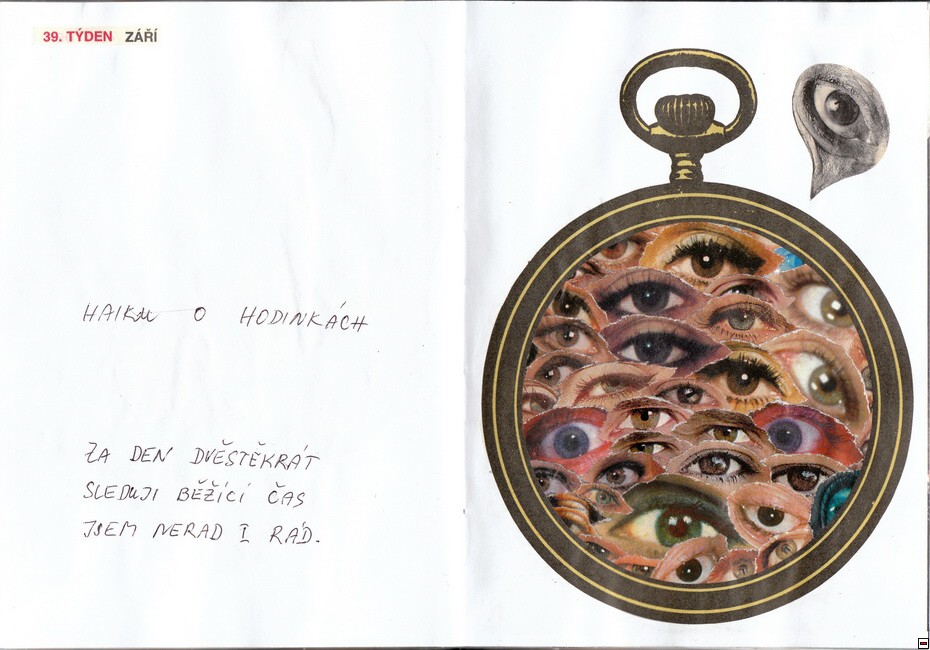 39. TÝDEN ZÁŘÍ
HAIKU O HODINKÁCH
ZA DEN DVĚSTĚKRÁT
SLEDUJI BĚŽÍCÍ ČAS
JSEM NERAD I RÁD.